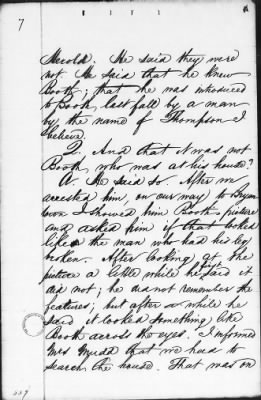 7
Herold. He said they were
not. He said that he knew
Booth; that he was introduced
to Booth last fall by a man
by the name of Thompson I
believe.
Q. And that it was not
Booth who was at his house?
A. He said so. After we
arrested him, on our way to Bryan
town I showed him Booth's picture
and asked him if that looked
like the man who had his leg
broken. After looking at the
picture a little while he said it
did not; he did not remember the
features; but after a while he
said it looked something like
Booth across the eyes. I informed
Mrs Mudd that we had to
search the house. That was on